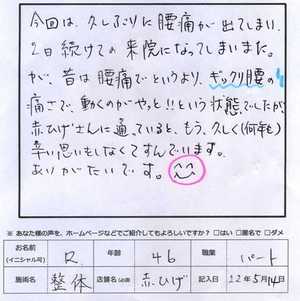 今回は、久しぶりに腰痛が出てしまい、
2日続けての来院になってしまいました。
が、昔は腰痛でというより、ギックリ腰の
痛さで、動くのがやっと!!という状態でしたが、
赤ひげさんに通っていると、もう、久しく(何年も)
辛い思いもしなくてすんでいます。
ありがたいです。
※ あなた様の声を、ホームページなどでご紹介してもよろしいですか？ □はい □匿名で □ダメ
お名前 (イニシャル可) R 年齢 46 職業 パート
施術名 整体 店舗名 赤ひげ 記入日 22年5月14日